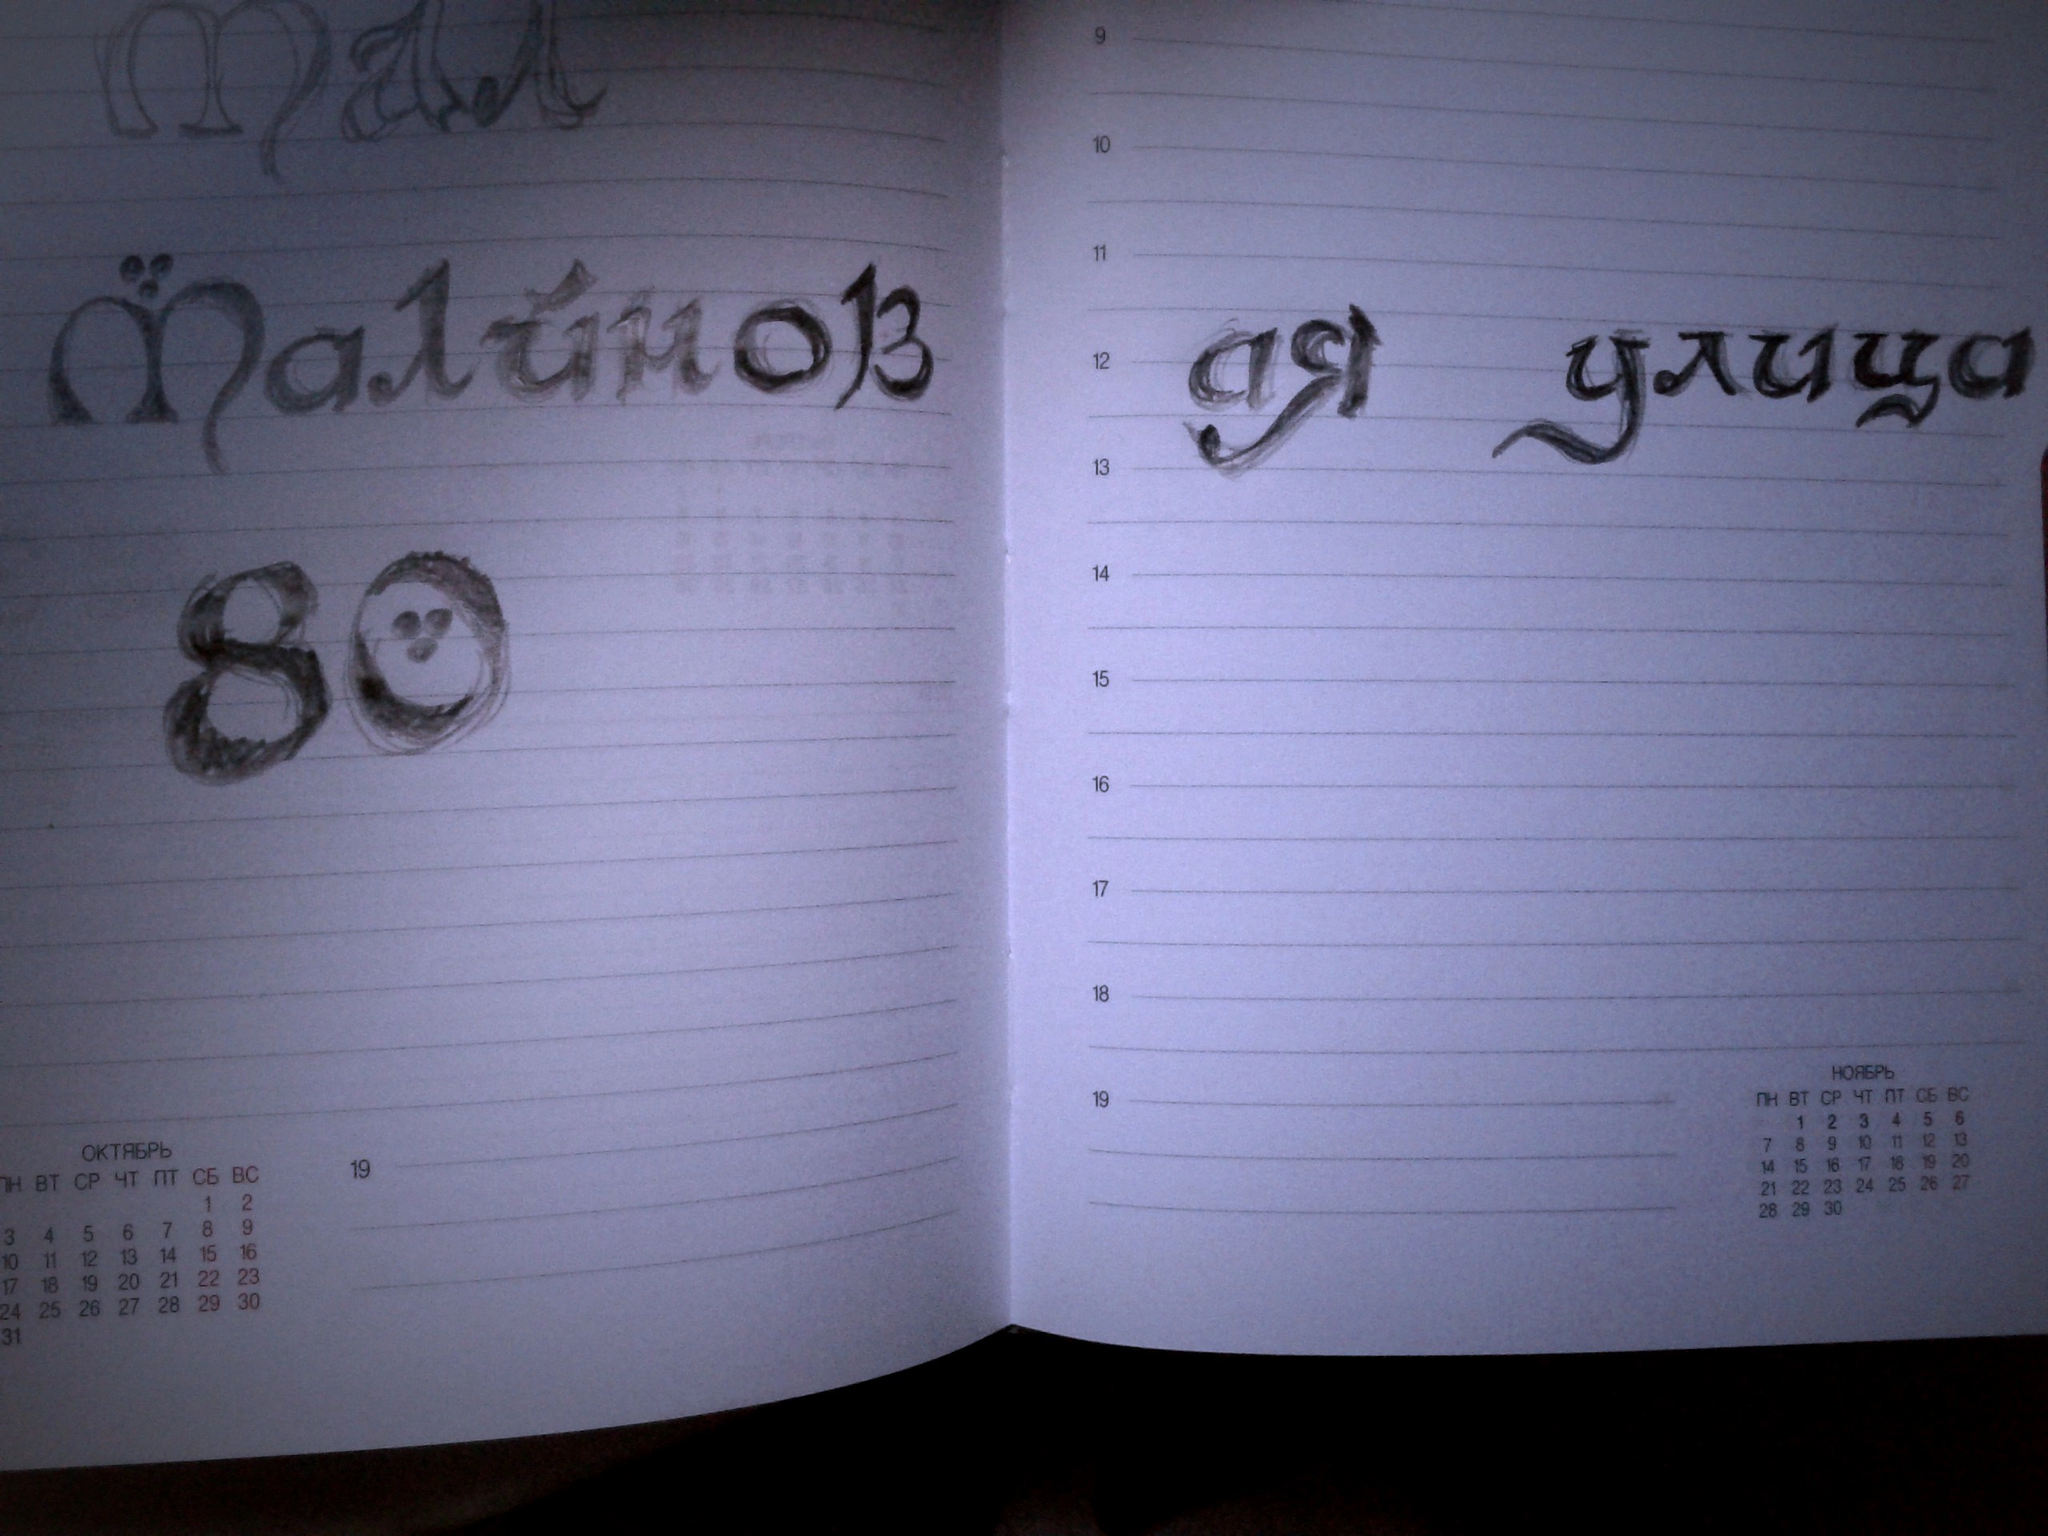 Мал
Малинов
80
ОКТЯБРЬ
ПН ВТ СР ЧТ ПТ СБ ВС
1 2
3 4 5 6 7 8 9
10 11 12 13 14 15 16
17 18 19 20 21 22 23
24 25 26 27 28 29 30
31
19
9
10
11
ая улица
12
13
14
15
16
17
18
19
НОЯБРЬ
ПН ВТ СР ЧТ ПТ СБ ВС
1 2 3 4 5 6
7 8 9 10 11 12 13
14 15 16 17 18 19 20
21 22 23 24 25 26 27
28 29 30